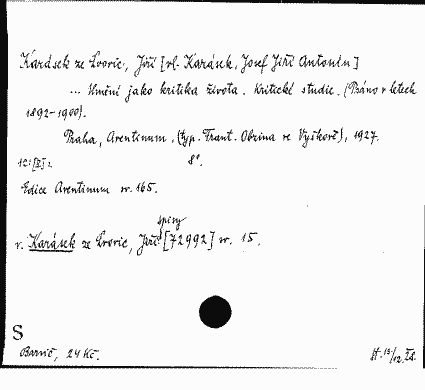 Karásek ze Lvovic, Jiří [vl. Karásek, Josef Jiří Antonín]
... Umění jako kritika života. Kritické studie. (Psáno v letech
1892-1900).
Praha, Aventinum, (typ. Frant. Obzina ve Vyškově), 1927.
8°.
Edice Aventinum sv. 165.
spisy
v. Karásek ze Lvovic, Jiří [72992] sv. 15.
S
24 Kč.